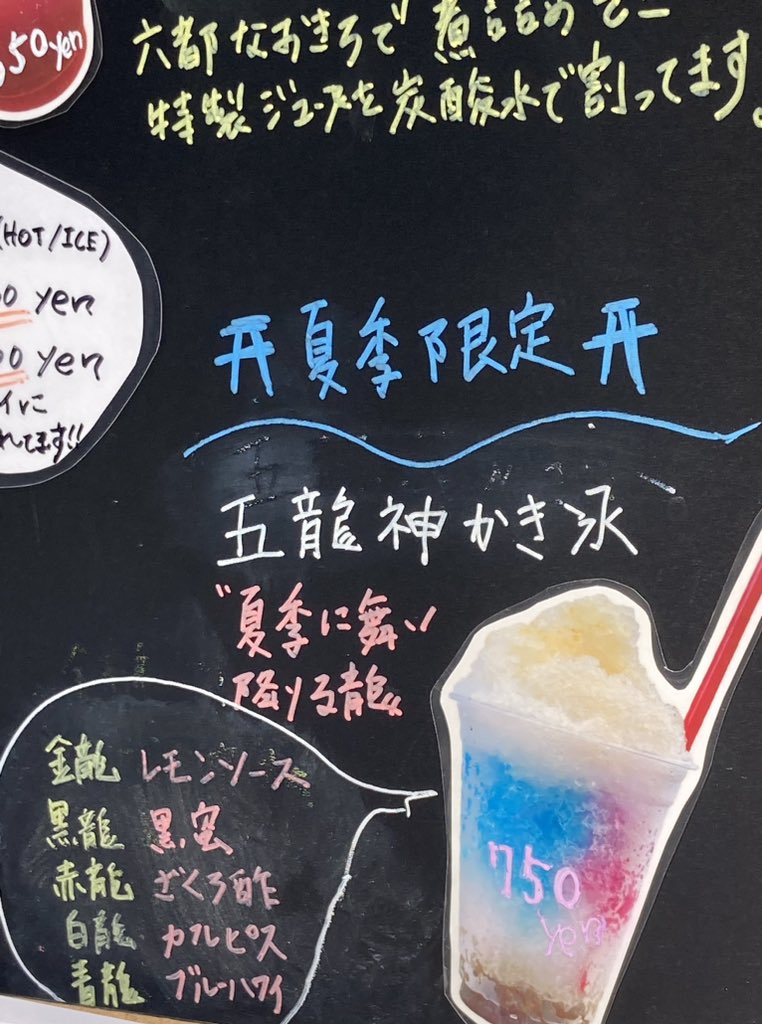 50yen
六都なおきろで煮詰めてー
特製ジュースを炭酸水で割ってます。
(HOT/ICE)
00 yen
00 yen
イルに
れてます!!
夏季限定
五龍神かき氷
"夏季に舞い
降りる龍"
金龍 レモンソース
黒龍 黒蜜
赤龍 ざくろ酢
白龍 カルピス
青龍 ブルーハワイ
750
yen